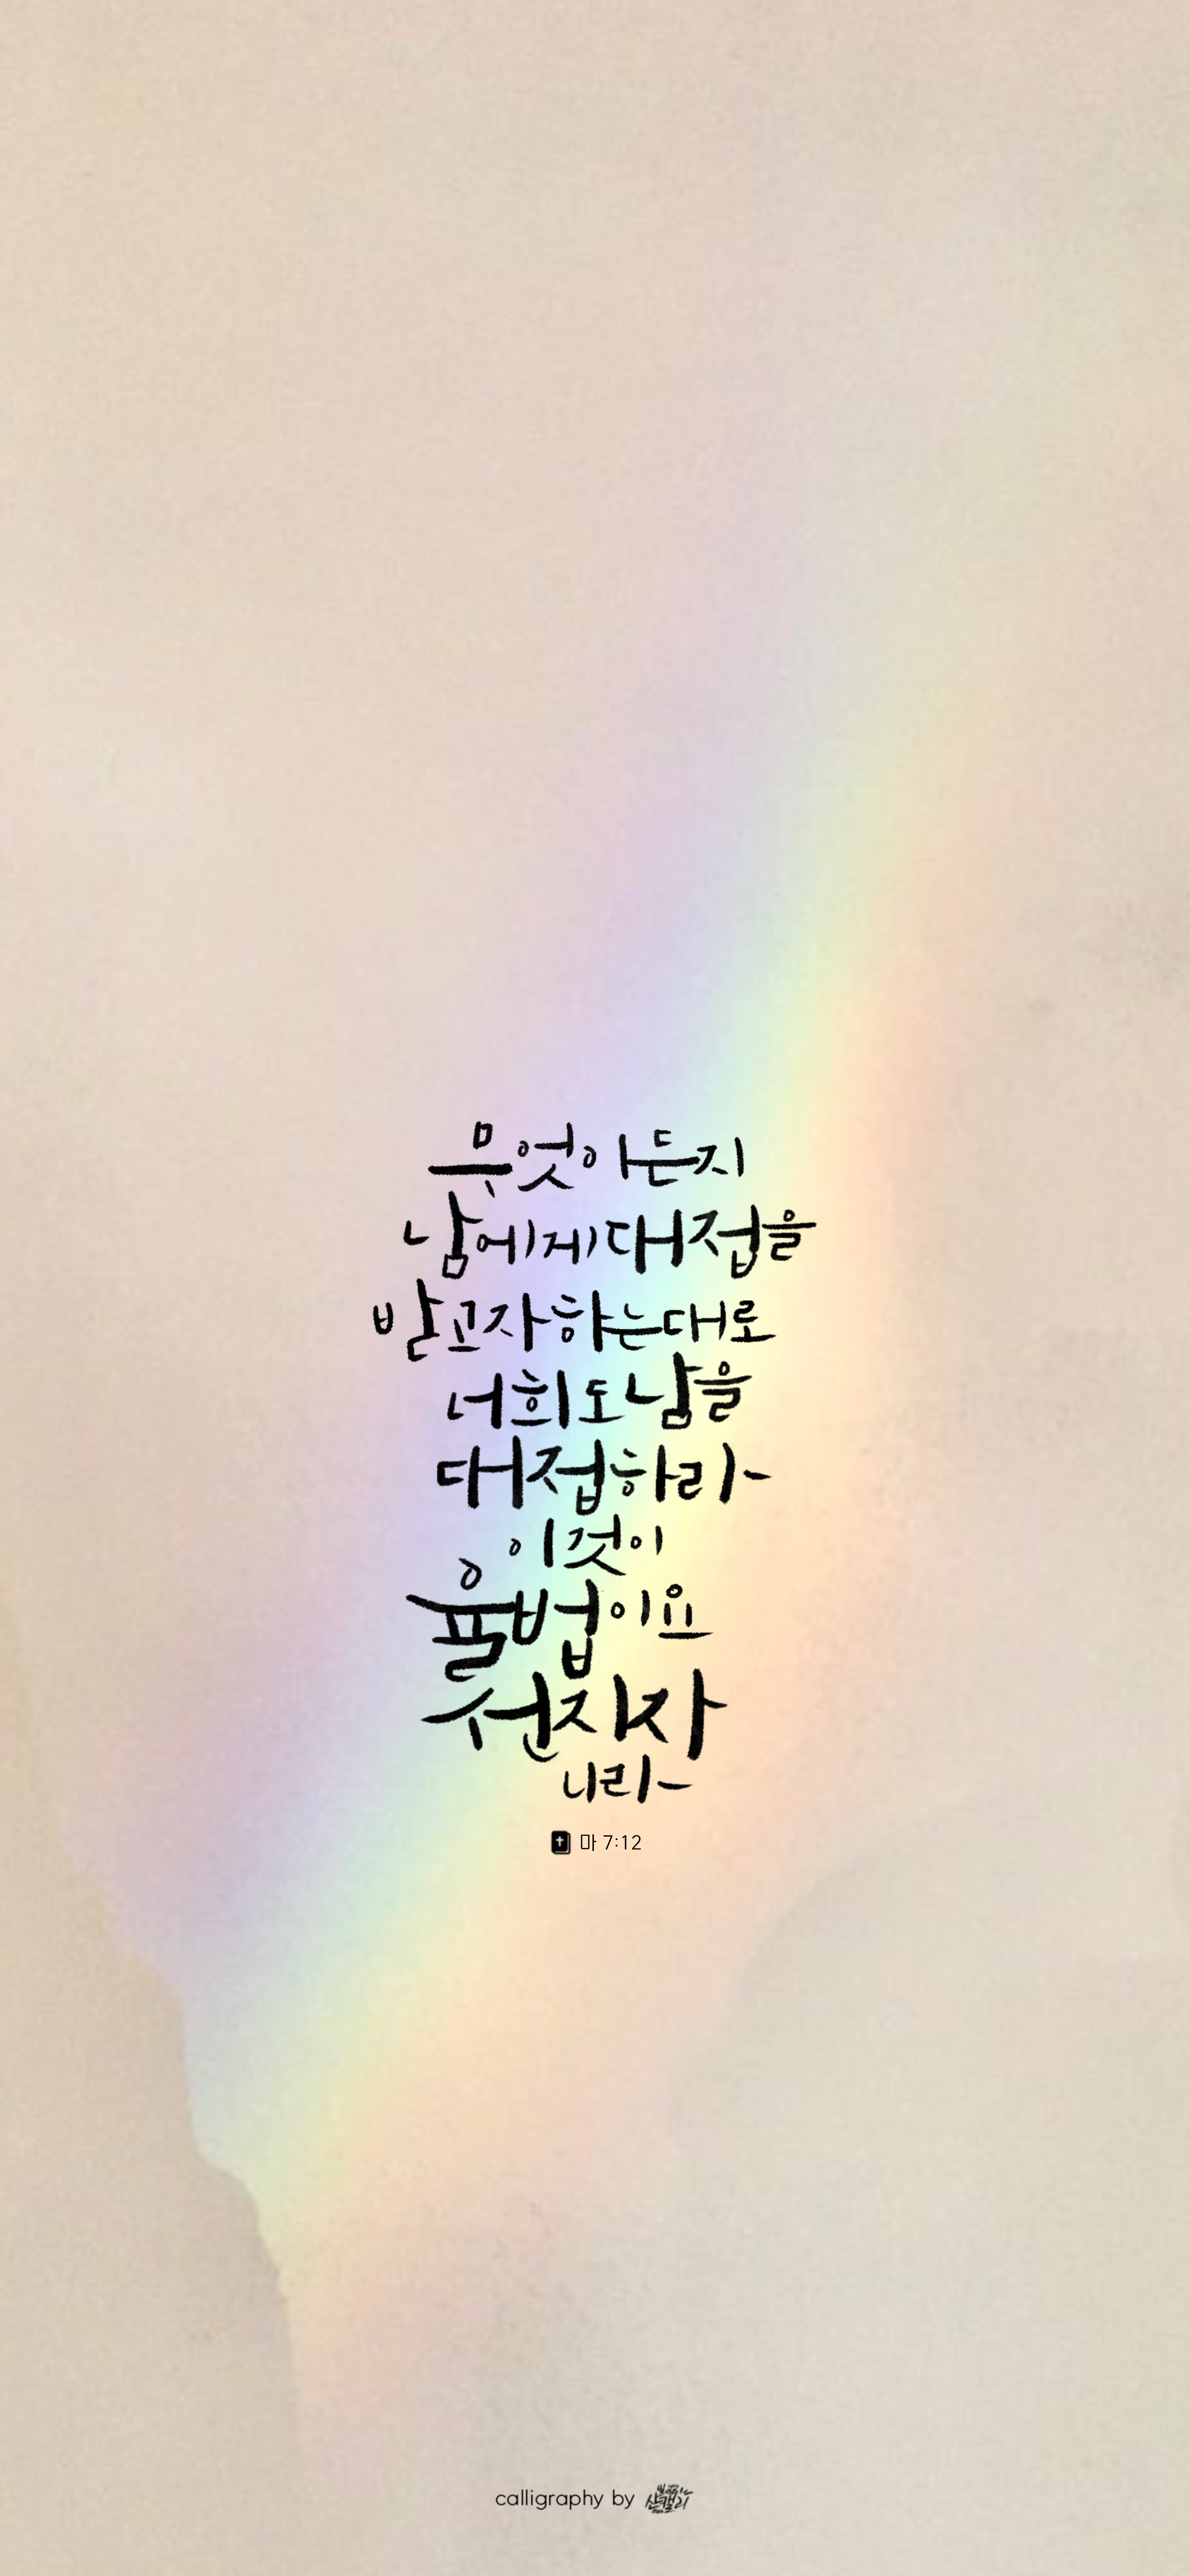 무엇이든지
남에게 대접을
받고자 하는대로
너희도 남을
대접하라
이것이
율법이요
선지자
니라
마 7:12
calligraphy by